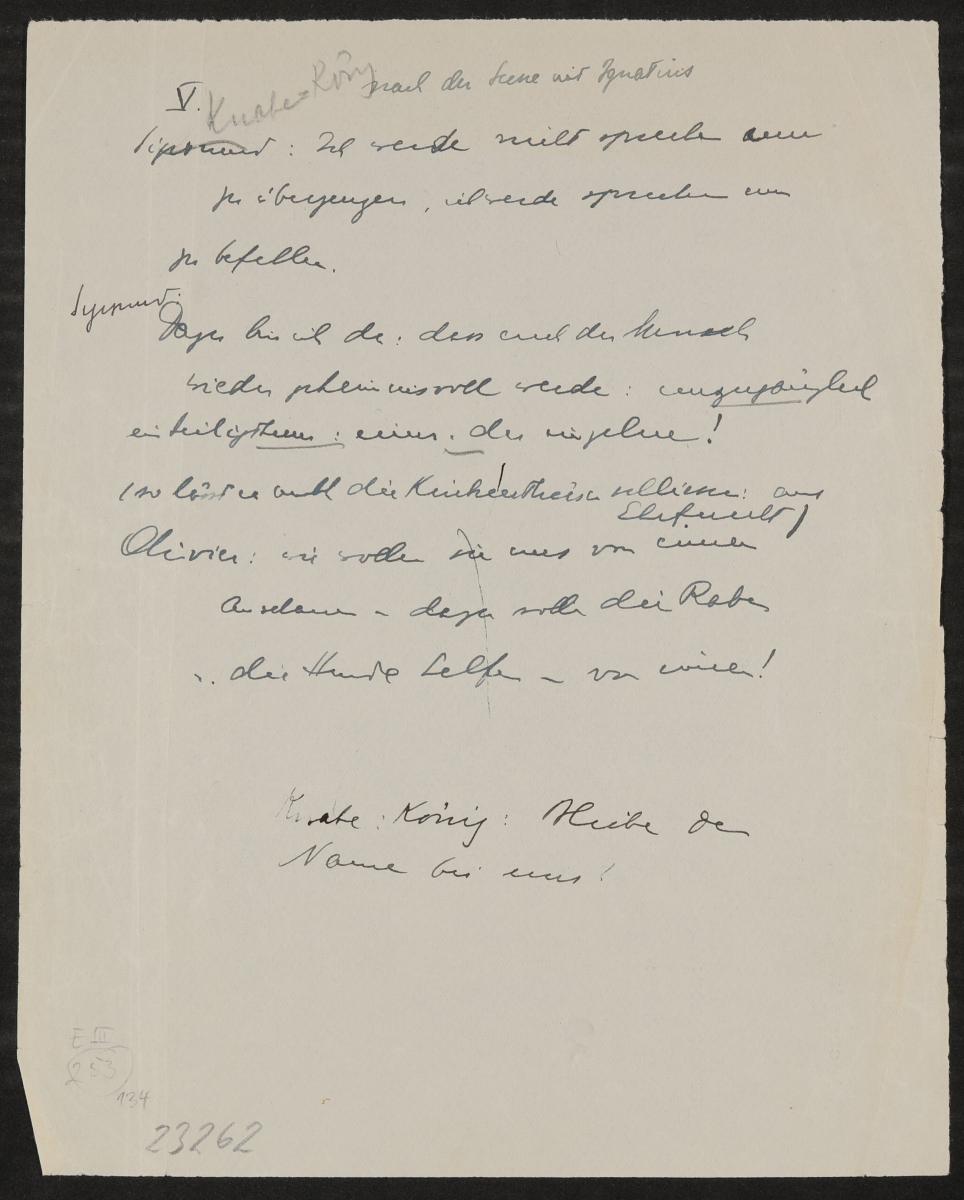 V. Knabe-König nach der Scene mit Ignatius
Sigismund: Ich werde nicht sprechen um
zu überzeugen, ich werde sprechen um
zu befehlen.
Sigismund:
Dazu bin ich da: dass auch der Mensch
wieder geheimnisvoll werde: unzugänglich
ein Heiligthum: einer. der einzelne!
(so lässt er auch die Kirchenthüren schliessen: aus
Ehrfurcht)
Olivier: wir wollen sie uns von innen
anschauen – dazu sollen die Raben
u. die Hunde helfen – von innen!
Knabe: König: bleibe dein
Name bei uns!
E III
253
134
23262